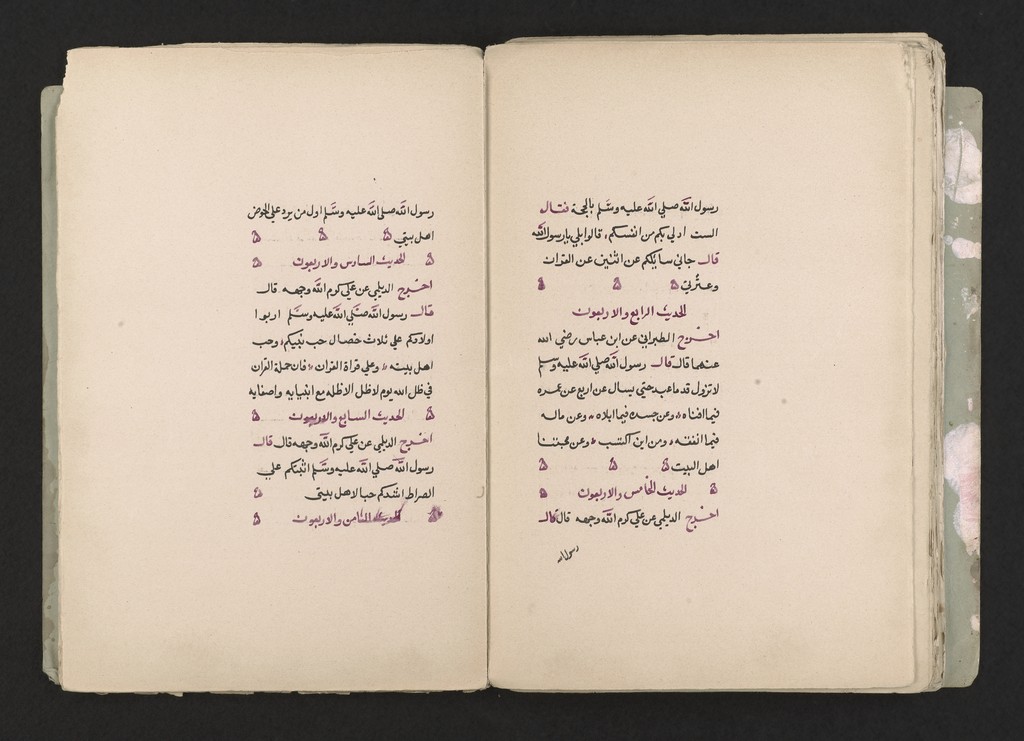 رسول الله صلى الله عليه وسلم بالجحفة فقال
الست اولى بكم من انفسكم، قالوا بلى يا رسول الله
قال جاني سايلكم عن اثنين عن القران
وعترتي
الحديث الرابع والاربعون
اخرج الطبراني عن ابن عباس رضي الله
عنهما قال قال رسول الله صلى الله عليه وسلم
لا تزول قدما عبد حتى يسال عن اربع عن عمره
فيما افناه، وعن جسده فيما ابلاه، وعن ماله
فيما انفقه، ومن اين اكتسب، وعن محبتنا
اهل البيت
الحديث الخامس والاربعون
اخرج الديلمي عن علي كرم الله وجهه قال قال
رسول الله
رسول الله صلى الله عليه وسلم اول من يرد علي الحوض
اهل بيتي
الحديث السادس والاربعون
اخرج الديلمي عن علي كرم الله وجهه قال
قال رسول الله صلى الله عليه وسلم ادبوا
اولادكم على ثلاث خصال حب نبيكم، وحب
اهل بيته، وعلى قراة القران، فان حملة القران
في ظل الله يوم لا ظل الا ظله مع انبيايه واصفيايه
الحديث السابع والاربعون
اخرج الديلمي عن علي كرم الله وجهه قال قال
رسول الله صلى الله عليه وسلم اثبتكم على
الصراط اشدكم حبا لاهل بيتي
الحديث الثامن والاربعون